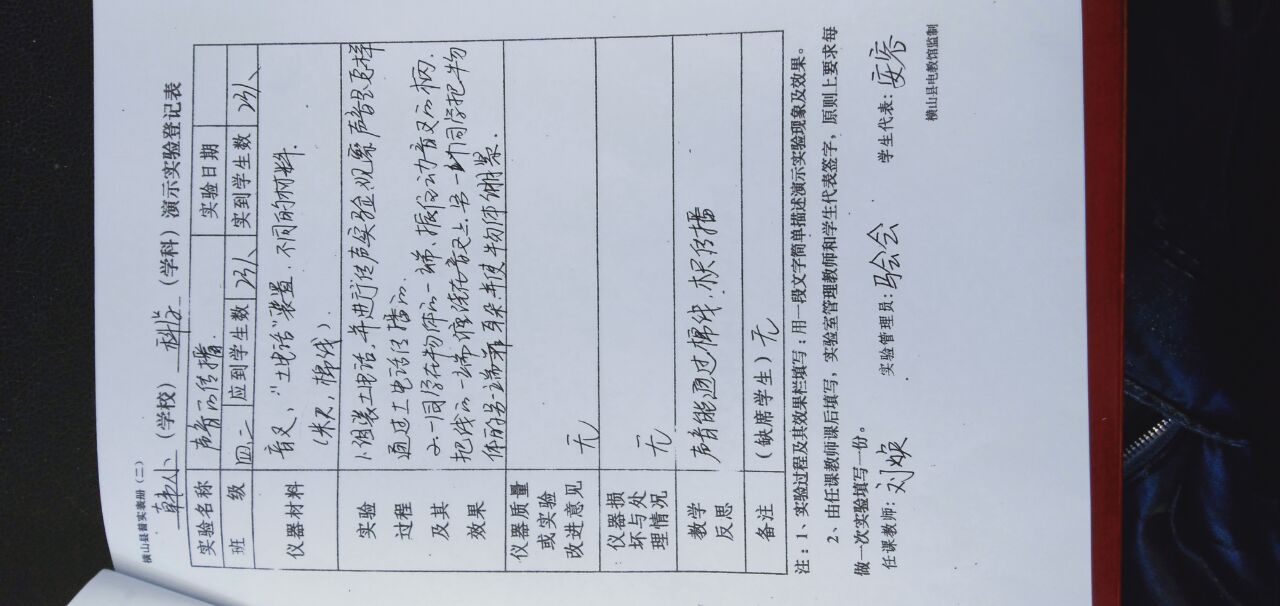 横山县普实表册（二）
（学校） 科学 （学科）演示实验登记表
实验名称 声音的传播 实验日期
班级 四.二 应到学生数 23人 实到学生数 23人
仪器材料 音叉，"土电话"装置．不同的材料．
（米尺，棉线）．
实验过程及其效果 1、组装土电话，并进行传声实验，观察声音是怎样
通过土电话传播的．
2．一同学在物体的一端，振动音叉的柄，
把线的一端 在音叉上，另一 同学把物
体的另一端靠 耳朵 物体绷紧．
仪器质量或实验改进意见 无
仪器损坏与处理情况 无
教学反思 声音能通过棉线，木尺传播
备注 （缺席学生）无
注：1、实验过程及其效果栏填写：用一段文字简单描述演示实验现象及效果。
2、由任课教师课后填写，实验室管理教师和学生代表签字，原则上要求每
做一次实验填写一份。
任课教师：刘焕 实验管理员：马会会 学生代表：安容
横山县电教馆监制